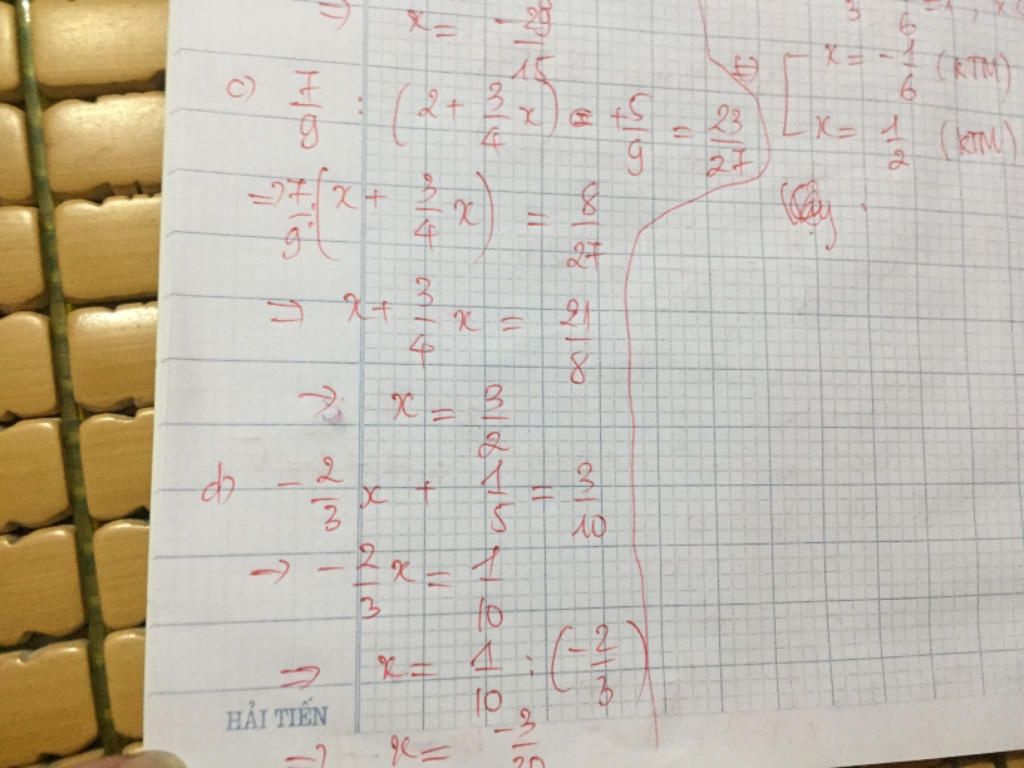 => x = -29/15
c) 7/9 : (2 + 3/4 x) = +5/9 = 23/27
=> 7/9 : (x + 3/4 x) = 8/27
=> x + 3/4 x = 21/8
=> x = 3/2
d) -2/3 x + 1/5 = 3/10
=> -2/3 x = 1/10
=> x = 1/10 : (-2/3)
HẢI TIẾN
=> x = -3/20
x = -1/6 (KTM)
x = 1/2 (KTM)